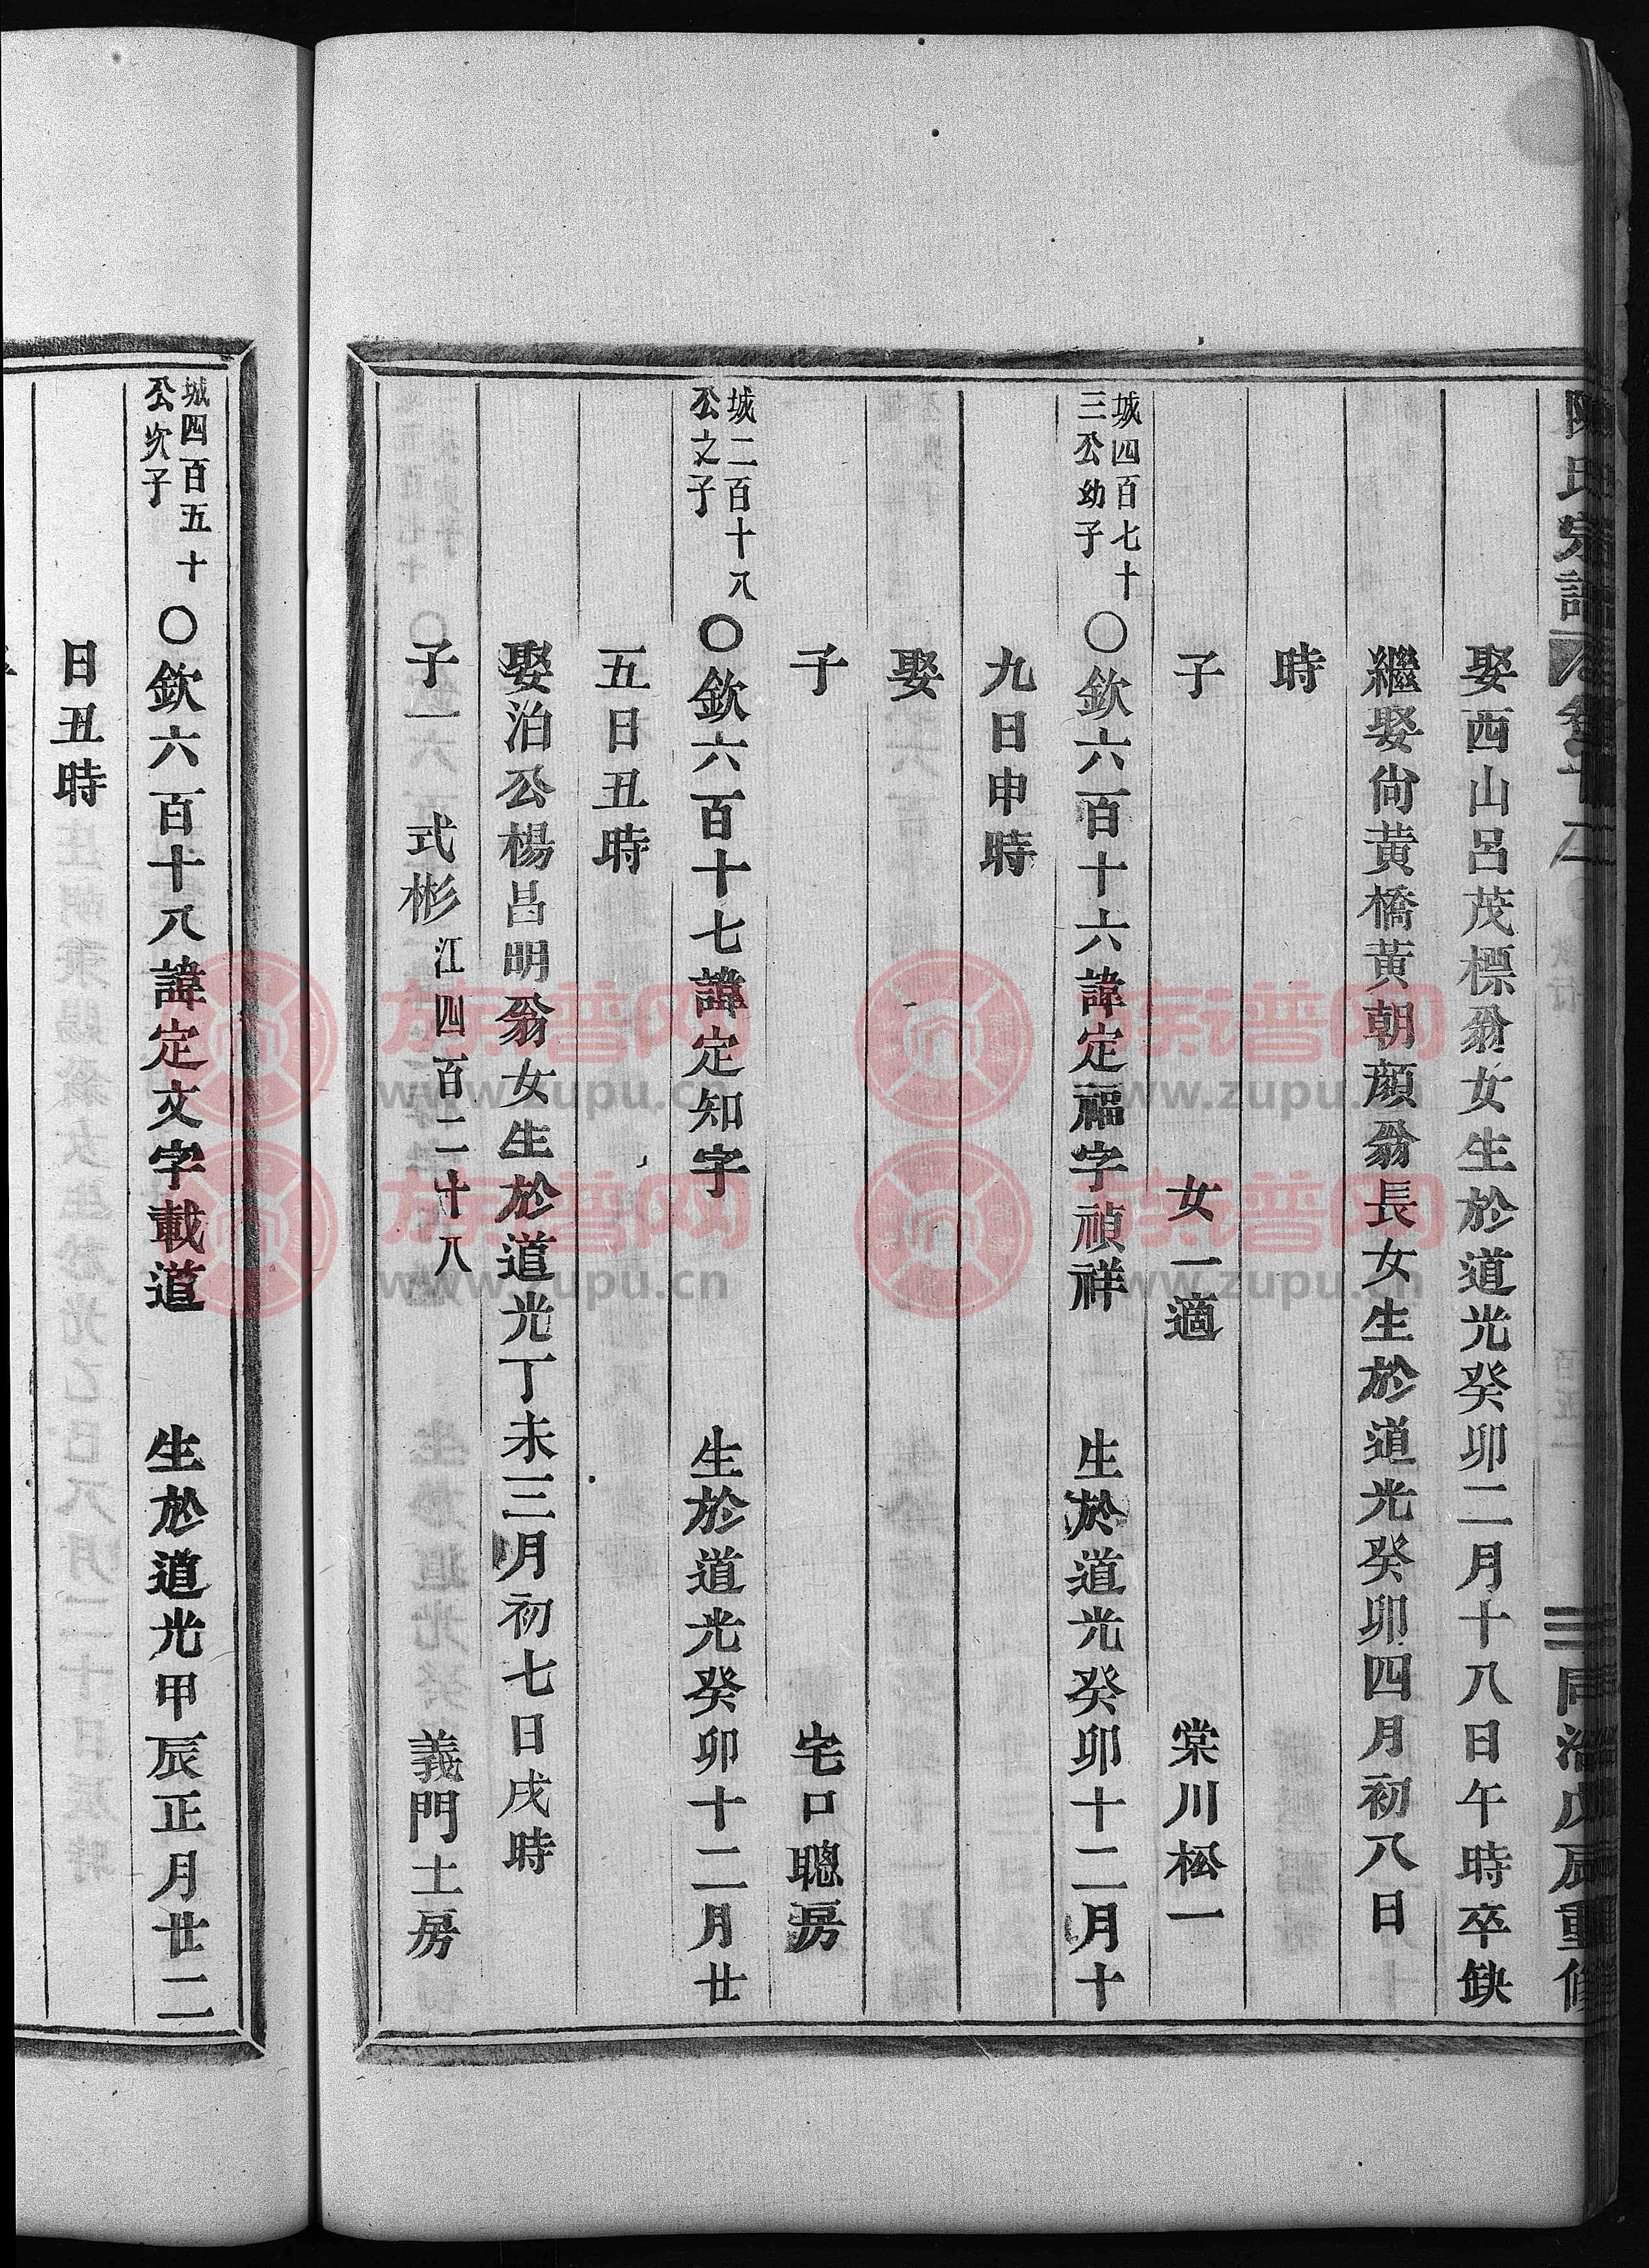 陳氏宗譜
同治戊辰重修
娶西山呂茂標翁女生於道光癸卯二月十八日午時卒缺
繼娶尙黃橋黃朝顏翁長女生於道光癸卯四月初八日
時
子 女一適 棠川松一
城四百七十
三公幼子
○欽六百十六諱定福字禎祥 生於道光癸卯十二月十
九日申時
娶
子 宅口聰房
城二百十八
公之子
○欽六百十七諱定知字 生於道光癸卯十二月廿
五日丑時
娶泊公楊昌明翁女生於道光丁未三月初七日戌時
子一 式彬 江四百二十八 義門士房
城四百五十
公次子
○欽六百十八諱定文字載道 生於道光甲辰正月廿二
日丑時
族谱网
www.zupu.cn
族谱网
www.zupu.cn
族谱网
www.zupu.cn
族谱网
www.zupu.cn